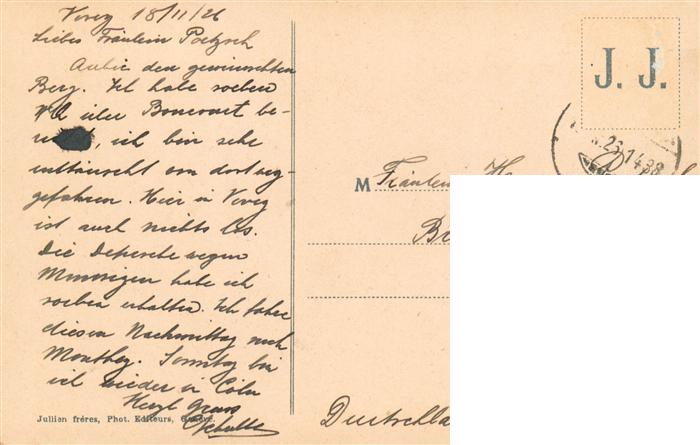 Vevey 18/11/26
Liebes Fräulein Poetzsch
Anbei den gewünschten
Berg. Ich habe soeben
über Bonevaet be-
, ich bin sehr
enttäuscht von dort weg-
gefahren. Hier in Vevey
ist auch nichts los.
Die Depesche wegen
habe ich
soeben erhalten. Ich fahre
diesen Nachmittag nach
Monthey. Sonntag bin
ich wieder in Cöln
Herzl Gruss
Schulte
Jullien fréres, Phot. Editeurs, Genève.
J. J.
26.14
M Fräulein
Deutschla